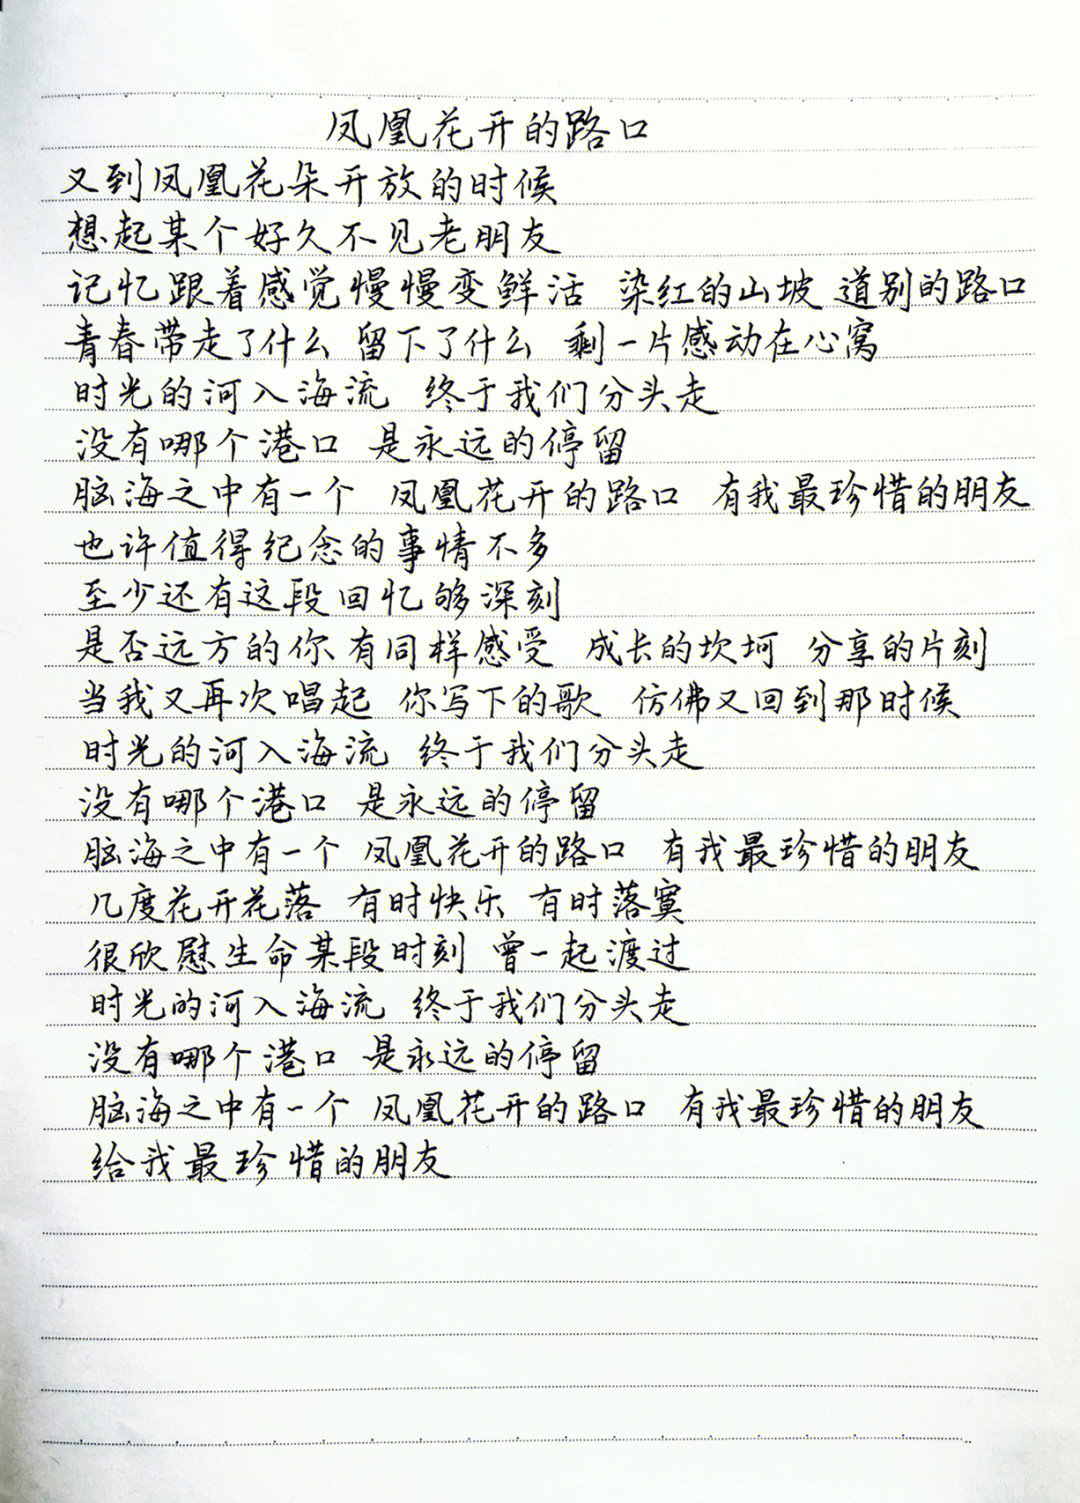 凤凰花开的路口
又到凤凰花朵开放的时候
想起某个好久不见老朋友
记忆跟着感觉慢慢变鲜活 染红的山坡 道别的路口
青春带走了什么 留下了什么 剩一片感动在心窝
时光的河入海流 终于我们分头走
没有哪个港口 是永远的停留
脑海之中有一个 凤凰花开的路口 有我最珍惜的朋友
也许值得纪念的事情不多
至少还有这段回忆够深刻
是否远方的你有同样感受 成长的坎坷 分享的片刻
当我又再次唱起 你写下的歌 仿佛又回到那时候
时光的河入海流 终于我们分头走
没有哪个港口 是永远的停留
脑海之中有一个 凤凰花开的路口 有我最珍惜的朋友
几度花开花落 有时快乐 有时落寞
很欣慰生命某段时刻 曾一起渡过
时光的河入海流 终于我们分头走
没有哪个港口 是永远的停留
脑海之中有一个 凤凰花开的路口 有我最珍惜的朋友
给我最珍惜的朋友